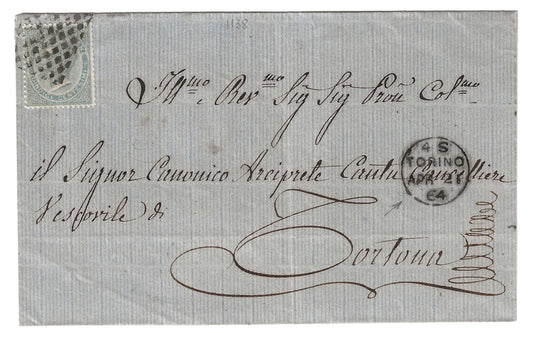 1138
Ill.mo e Rev.mo Sig Sig Proñ Col.mo
4 S
TORINO
APR 23
64
il Signor Canonico Arciprete Cantu Cancelliere
Vescovile di
Tortona